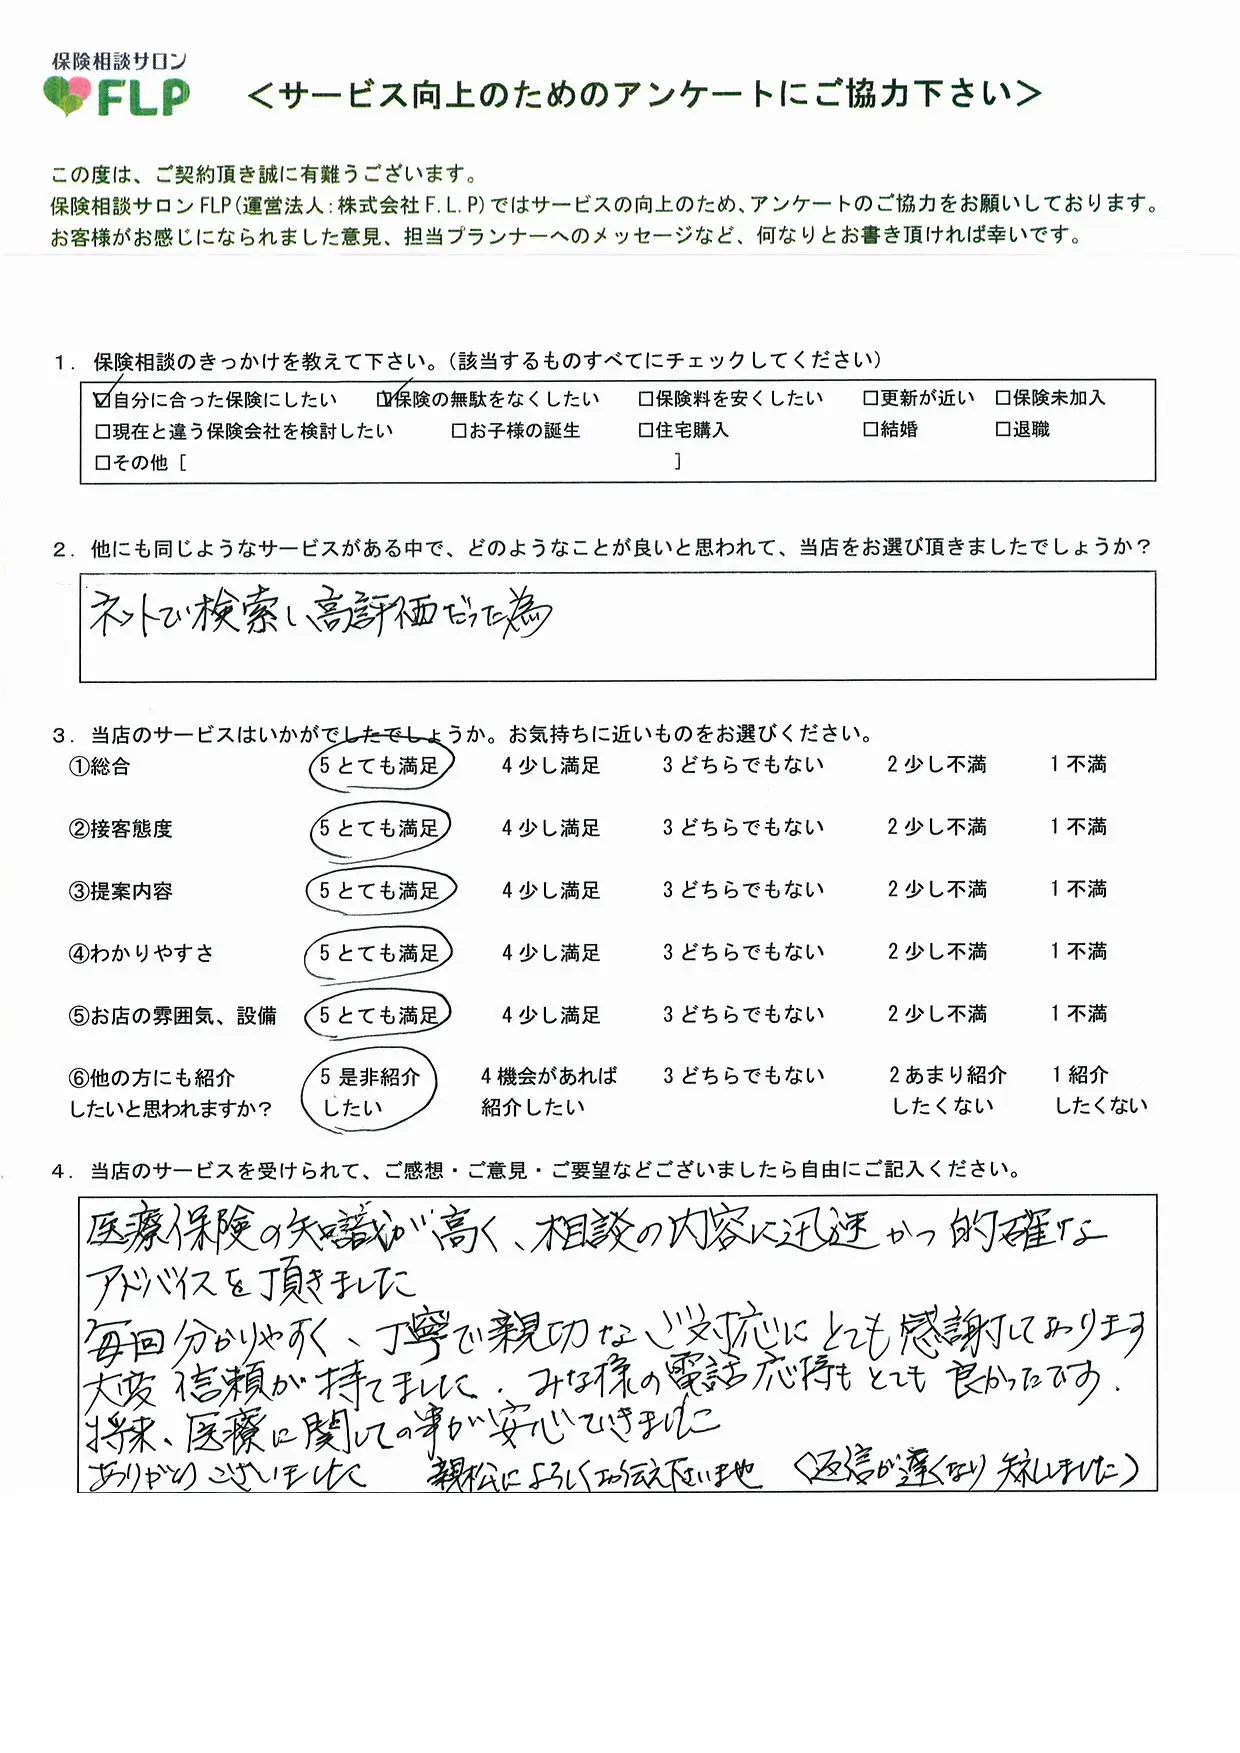 保険相談サロン
FLP
＜サービス向上のためのアンケートにご協力下さい＞
この度は、ご契約頂き誠に有難うございます。
保険相談サロンFLP(運営法人:株式会社F.L.P)ではサービスの向上のため、アンケートのご協力をお願いしております。
お客様がお感じになられました意見、担当プランナーへのメッセージなど、何なりとお書き頂ければ幸いです。
1. 保険相談のきっかけを教えて下さい。(該当するものすべてにチェックしてください)
☑自分に合った保険にしたい ☑保険の無駄をなくしたい □保険料を安くしたい □更新が近い □保険未加入
□現在と違う保険会社を検討したい □お子様の誕生 □住宅購入 □結婚 □退職
□その他 [ ]
2. 他にも同じようなサービスがある中で、どのようなことが良いと思われて、当店をお選び頂きましたでしょうか?
ネットで検索し高評価だった為
3. 当店のサービスはいかがでしたでしょうか。お気持ちに近いものをお選びください。
①総合 5 とても満足 4 少し満足 3 どちらでもない 2 少し不満 1 不満
②接客態度 5 とても満足 4 少し満足 3 どちらでもない 2 少し不満 1 不満
③提案内容 5 とても満足 4 少し満足 3 どちらでもない 2 少し不満 1 不満
④わかりやすさ 5 とても満足 4 少し満足 3 どちらでもない 2 少し不満 1 不満
⑤お店の雰囲気、設備 5 とても満足 4 少し満足 3 どちらでもない 2 少し不満 1 不満
⑥他の方にも紹介 5 是非紹介 4 機会があれば 3 どちらでもない 2 あまり紹介 1 紹介
したいと思われますか? したい 紹介したい したくない したくない
4. 当店のサービスを受けられて、ご感想・ご意見・ご要望などございましたら自由にご記入ください。
医療保険の知識が高く、相談の内容に迅速かつ的確な
アドバイスを頂きました
毎回分かりやすく、丁寧で親切なご対応にとても感謝しております
大変信頼が持てました. みな様の電話応待もとても良かったです.
将来、医療に関しての事が安心できました
ありがとうございました 親松によろしくお伝え下さいませ (返信が遅くなり失礼しました)